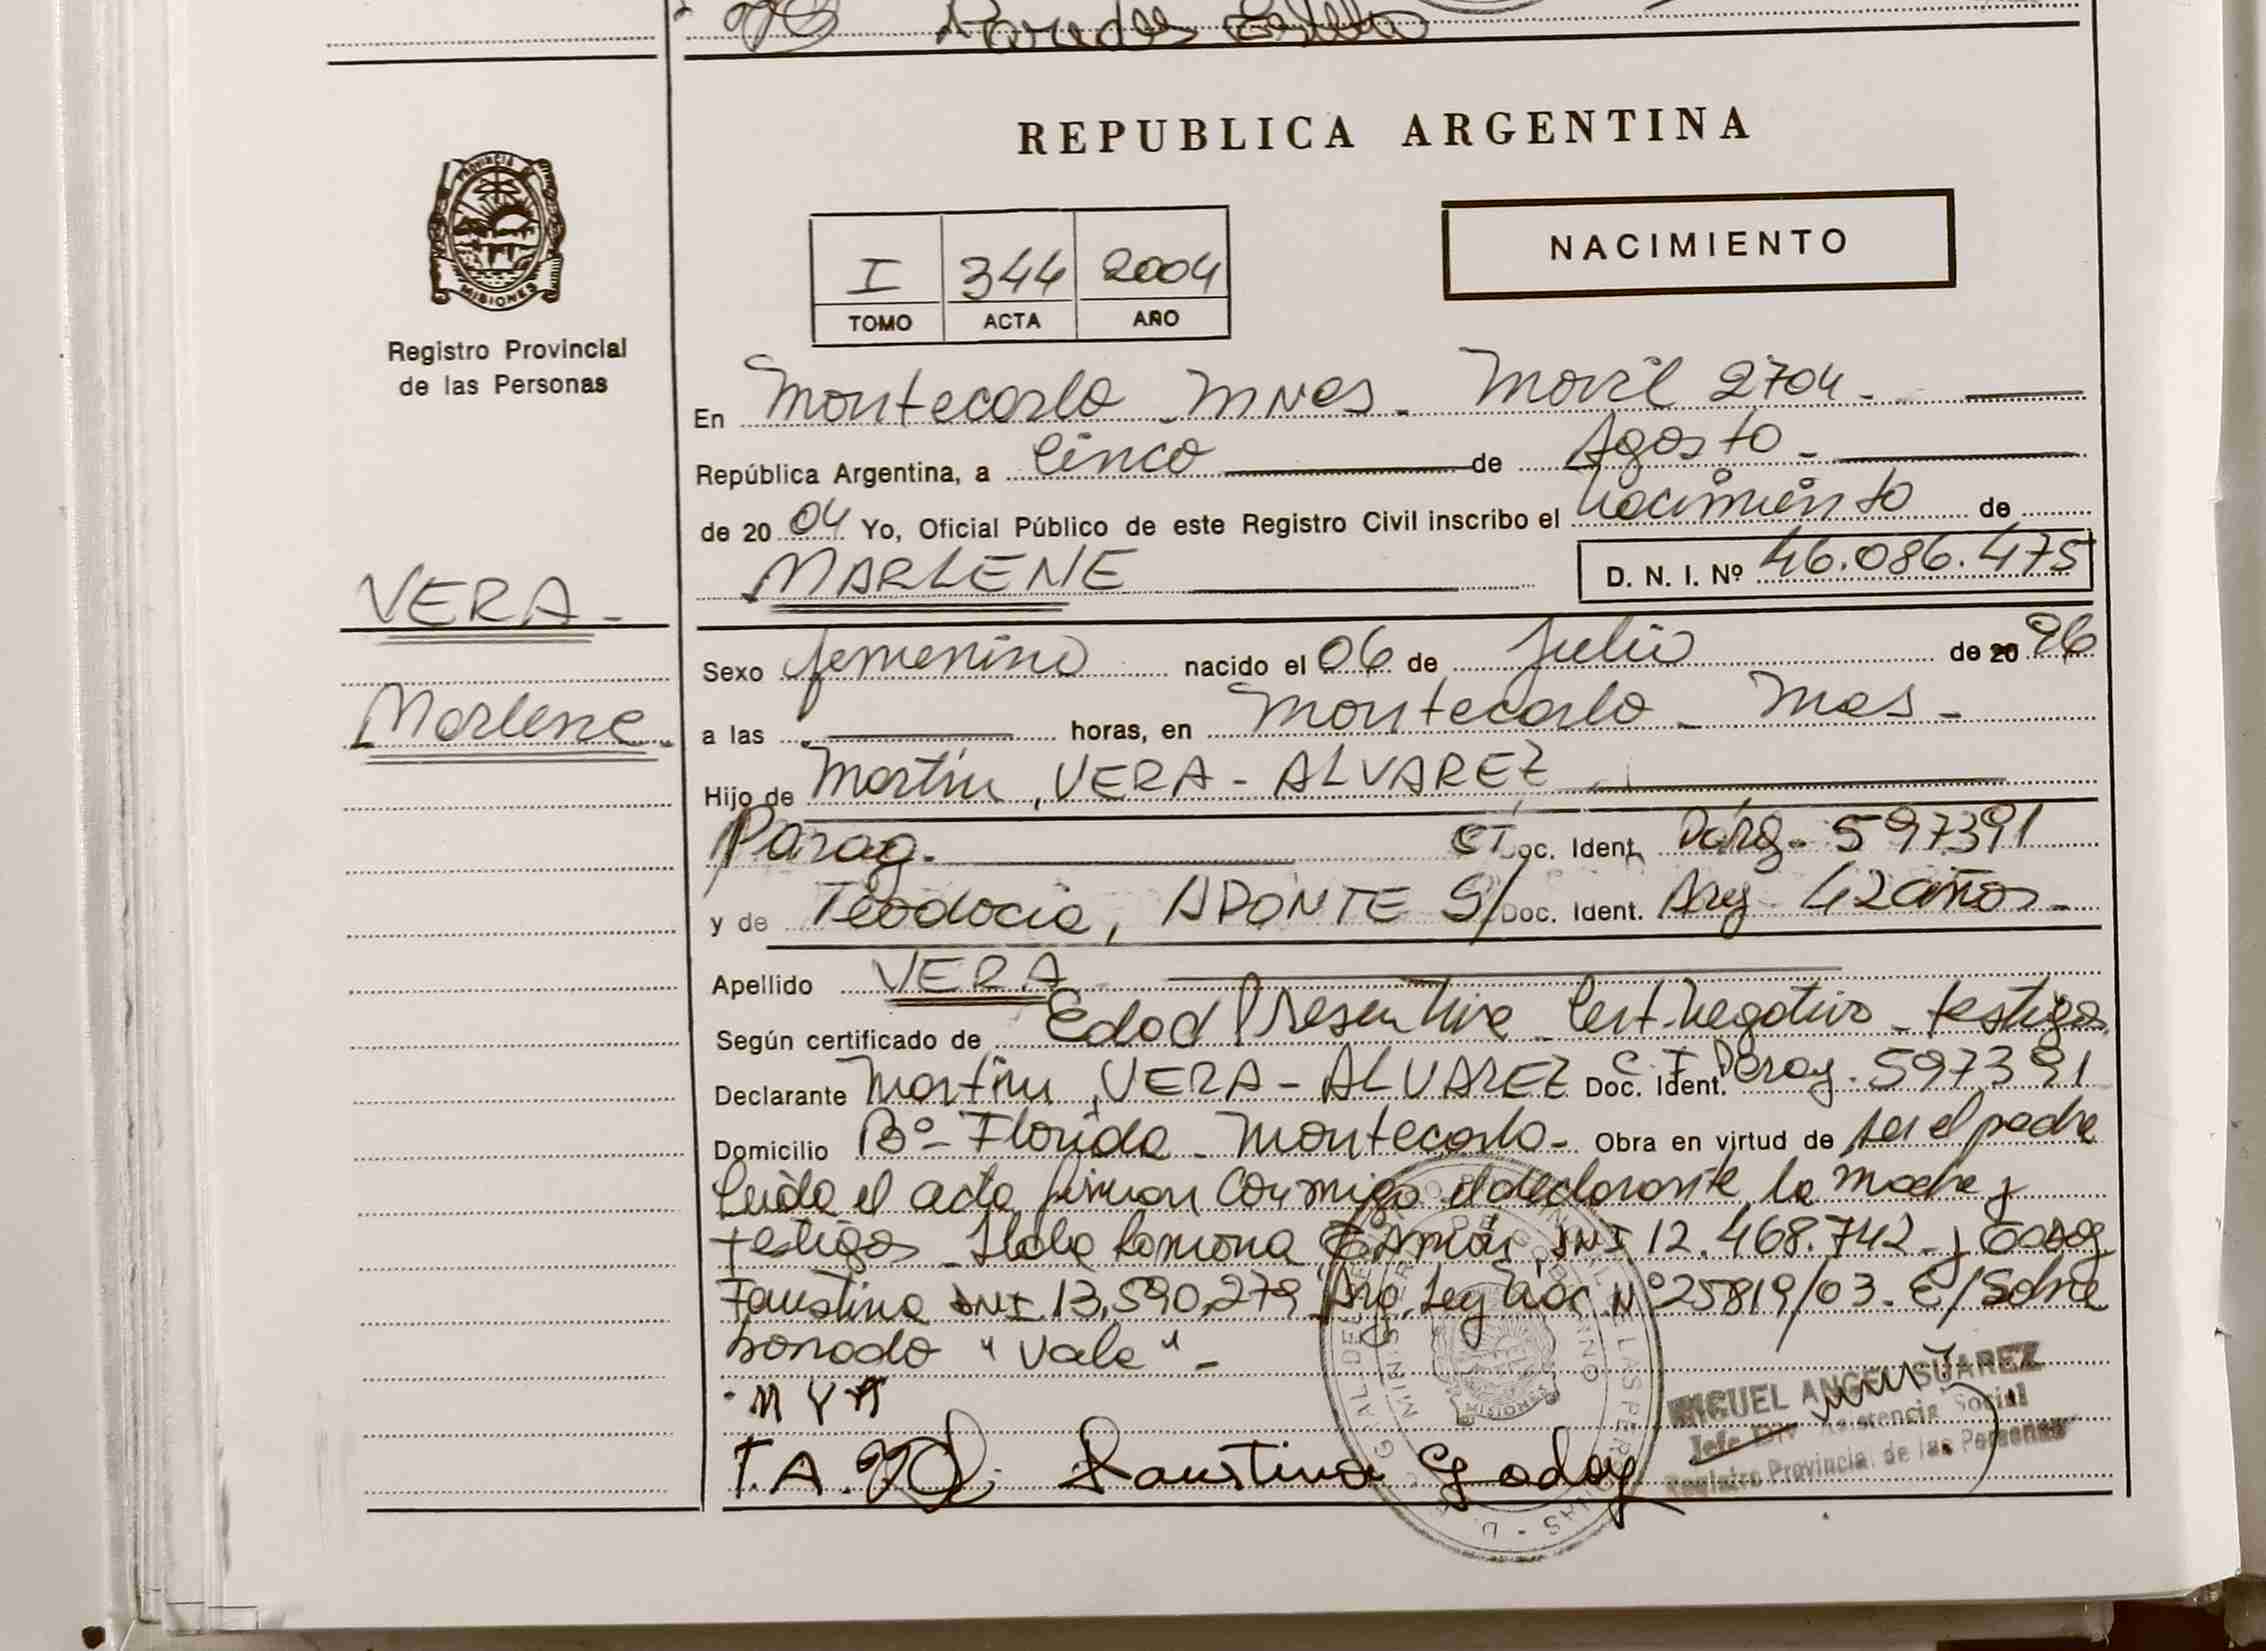 Paredes
REPUBLICA ARGENTINA
PROVINCIA
MISIONES
Registro Provincial
de las Personas
NACIMIENTO
I 344 2004
TOMO ACTA AÑO
En Montecarlo - Mnes. Movil 2704.-
República Argentina, a Cinco de Agosto -
de 2004 Yo, Oficial Público de este Registro Civil inscribo el nacimiento de
MARLENE D. N. I. Nº 46.086.475
VERA -
Marlene.
Sexo femenino nacido el 06 de Julio de 20 96
a las horas, en Montecarlo - Mnes -
Hijo de Martin, VERA - ALVAREZ
Parag. CI Doc. Ident. Parg. 597391
y de Teodocia, APONTE S/Doc. Ident. Arg. 42 años -
Apellido VERA
Según certificado de Edad Presentiva Cert. Negativo - testigos
Declarante Martin, VERA - ALVAREZ Doc. Ident. C.I. Parag. 597391
Domicilio Bº Florida - Montecarlo - Obra en virtud de ser el padre
Leida el acta firman conmigo el declarante la madre y
testigos Ramona DNI 12.468.742 y
Faustina DNI 13.590.279 Arg. Ley Nac. Nº 25819/03. E/Sobre
borrado "Vale" -
M Y A
T.A. Faustina Godoy
MIGUEL ANGEL SUAREZ
Jefe Div. Asistencia Social
Registro Provincial de las Personas